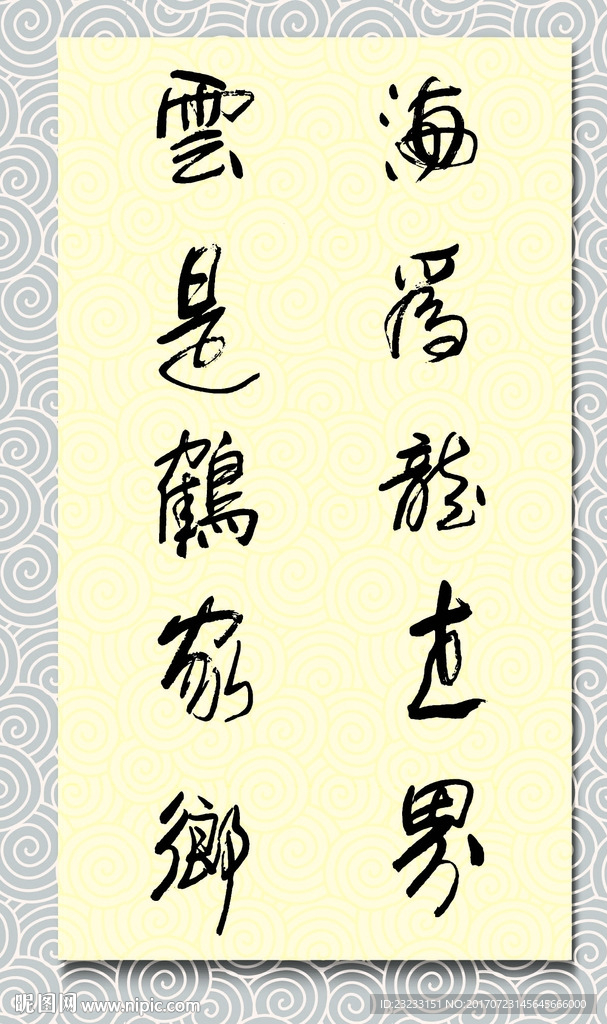 海為龍世界
雲是鶴家鄉
昵图网 www.nipic.com
ID:23233151 NO:20170723145645666000